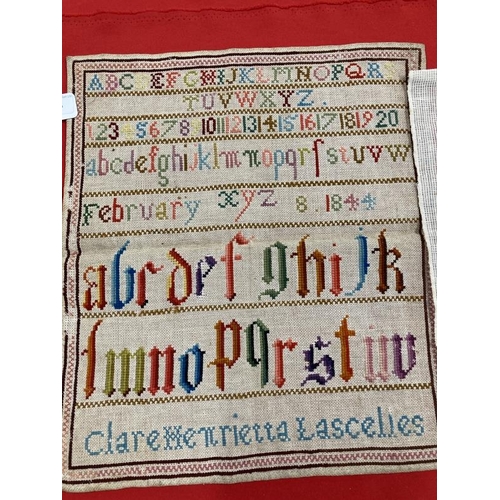 ABCDEFGHIJKLMNOPQRS
TUVWXYZ.
1234567891011121314151617181920
abcdefghijklmnopqrsſtuvw
February xyz 8.1844
abcdefghijk
lmnopqrstuv
Clare Henrietta Lascelles